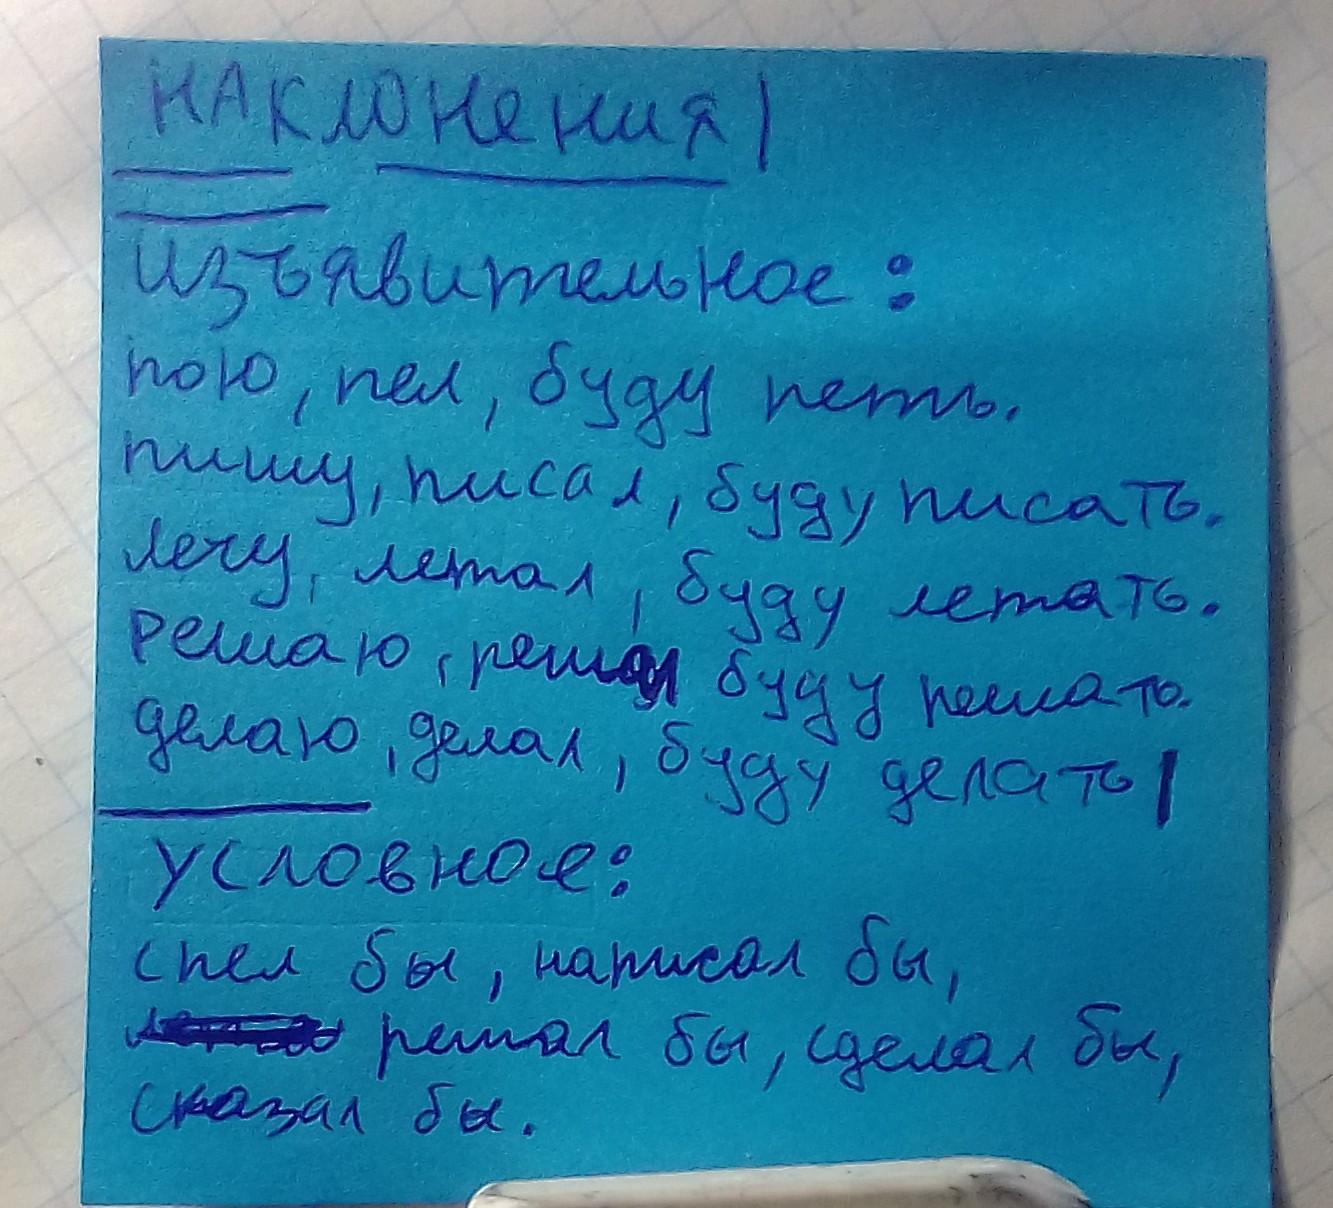 НАКЛОНЕНИЯ|
изъявительное:
пою, пел, буду петь.
пишу, писал, буду писать.
лечу, летал, буду летать.
решаю, решал буду решать.
делаю, делал, буду делать|
условное:
спел бы, написал бы,
решал бы, сделал бы,
сказал бы.